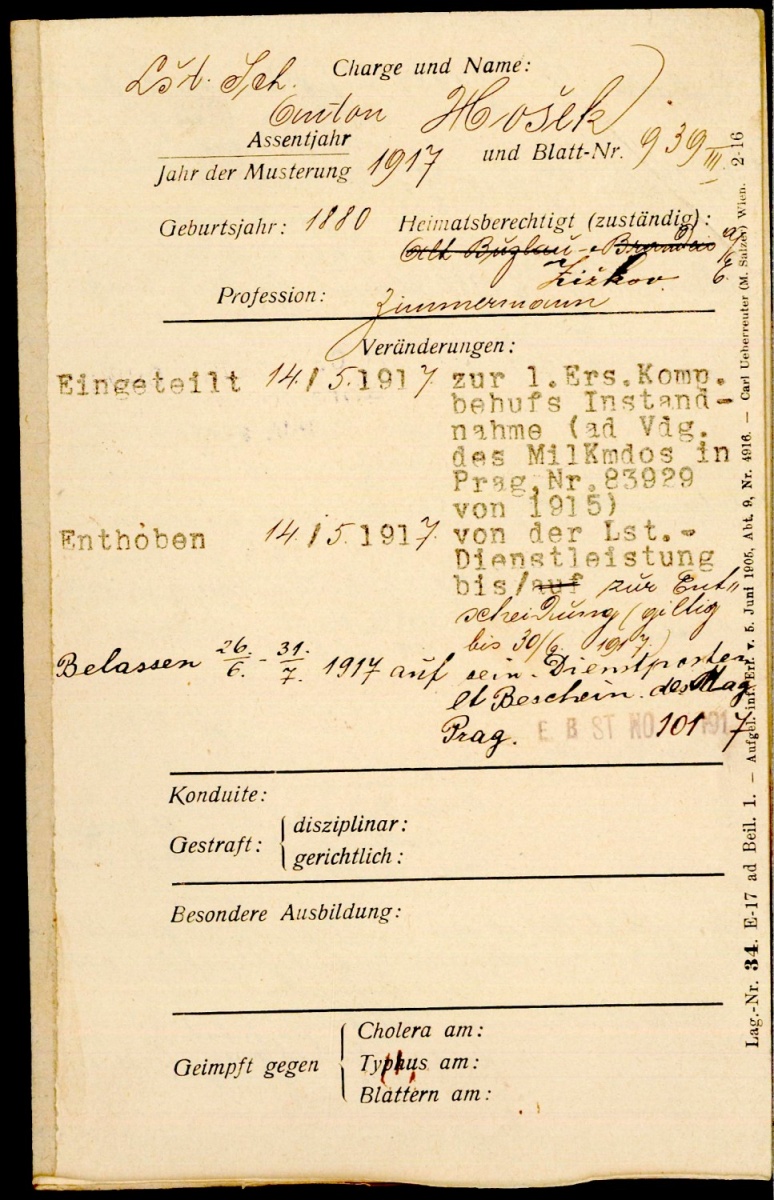 Lst. Sch. Charge und Name:
Anton Hošek
Assentjahr
Jahr der Musterung 1917 und Blatt-Nr. 939 III
Geburtsjahr: 1880 Heimatsberechtigt (zuständig):
Alt Bunzlau - Brandeis a/E
Žižkov
Profession: Zimmermann
Veränderungen:
Eingeteilt 14./5.1917. zur 1.Ers.Komp.
behufs Instand-
nahme (ad Vdg.
des MilKmdos in
Prag,Nr.83929
von 1915)
Enthoben 14./5.1917. von der Lst.-
Dienstleistung
bis/auf zur Ent-
scheidung (giltig
bis 30/6. 1917)
Belassen 26./6. - 31./7. 1917 auf sein. Dienstposten
lt Beschein. des Mag
Prag. E B ST NO 101 1917
Konduite:
Gestraft: disziplinar:
gerichtlich:
Besondere Ausbildung:
Geimpft gegen Cholera am:
Typhus am:
Blattern am:
Lag.-Nr. 34. E-17 ad Beil. 1. — Aufgel. inf. Erl. v. 5. Juni 1905, Abt. 9, Nr. 4916. — Carl Ueberreuter (M. Salzer) Wien. 2-16